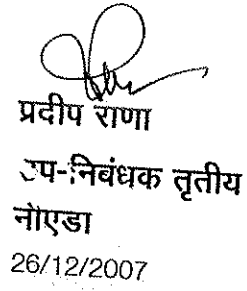 प्रदीप राणा
उप-निबंधक तृतीय
नोएडा
26/12/2007